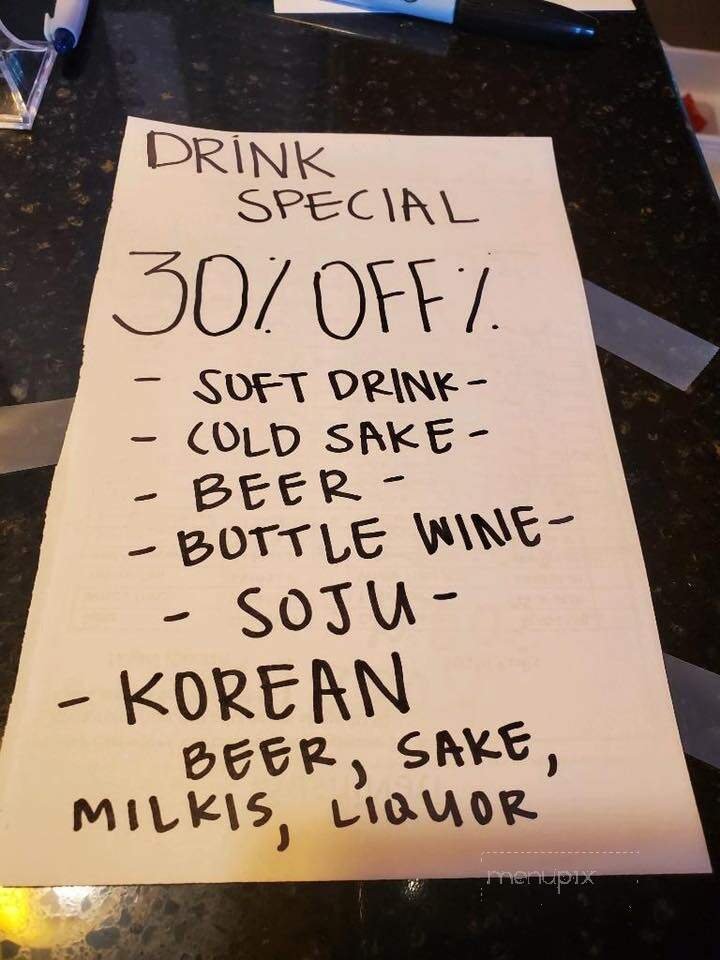 DRINK
SPECIAL
30% OFF %
- SOFT DRINK -
- COLD SAKE -
- BEER -
- BOTTLE WINE -
- SOJU -
- KOREAN
BEER, SAKE,
MILKIS, LIQUOR
menupix